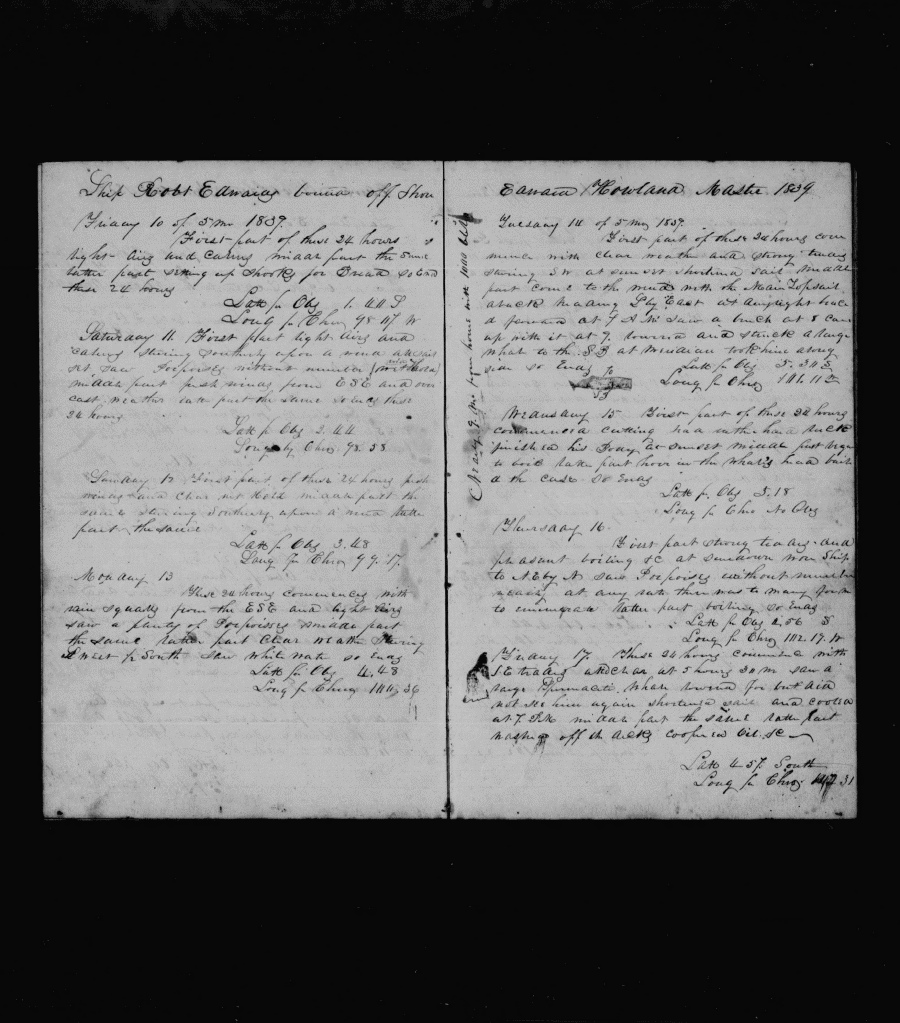 Ship Robt Edwards bound off Shore
Friday 10 of 5 mo 1839
First part of these 24 hours
light airs and calms midde part the same
latter part setting up Shooks for Bread so End
these 24 hours
Latt pr Obs 1.40 S
Long pr Chro 98 47 W
Saturday 11 First part light Airs and
calms stearing southerly upon a wind
saw Porpoises without number
midde part fresh winds from ESE and over
cast weather latter part the same so Ends these
24 hours
Latt pr Obs 2.44
Long by Chro 98.58
Sunday 12 First part of these 24 hours fresh
winds and clear
same stearing Southerly upon a wind latter
part the same
Latt pr Obs 3.48
Long pr Chro 99.17
Monday 13
These 24 hours commences with
rain squalls from the ESE and light Airs
saw a plenty of Porpoises midde part
the same latter part Clear weather stearing
S West pr South saw white water so Ends
Latt pr Obs 4.48
Long pr Chro 36
Edward Howland Master 1839
Tuesday 14 of 5 mo 1839
First part of these 24 hours com
mence with clear weather and strong trades
stearing SW at sunset shortend sail midde
part come to the wind with the Main Topsail
aback heading S by East at daylight brac
d forward at 7 AM saw a breach at 8 came
up with it at 9 lowered and struck a large
whale to the SB at Meridian took him along
side so Ends
Latt pr Obs 5.30 S
Long pr Chro 101.11
53
Wedusday 15 First part of these 24 hours
commenced cutting had rather hard luck
finished his body at sunset midde part began
to boil latter part hove in the whale's head bail
d the case so Ends
Latt pr Obs 5.18
Long pr Chro No Obs
Thursday 16
First part strong trades and
pleasant boiling &c at sundown wore Ship
to NE by N saw Porpoises without number
nearly at any rate there was to many for me
to enumerate latter part boiling so Ends
Latt pr Obs 4.56 S
Long pr Chro 102.17 W
Friday 17 These 24 hours commence with
SE trades and clear at 5 hours 30 m saw a
large Spermaceti Whale lowered for but did
not see him again shortened sail and cooled
at 7 PM midde part the same latter part
washing off th decks coopered Oil &c
Latt 4 57 South
Long pr Chro 31